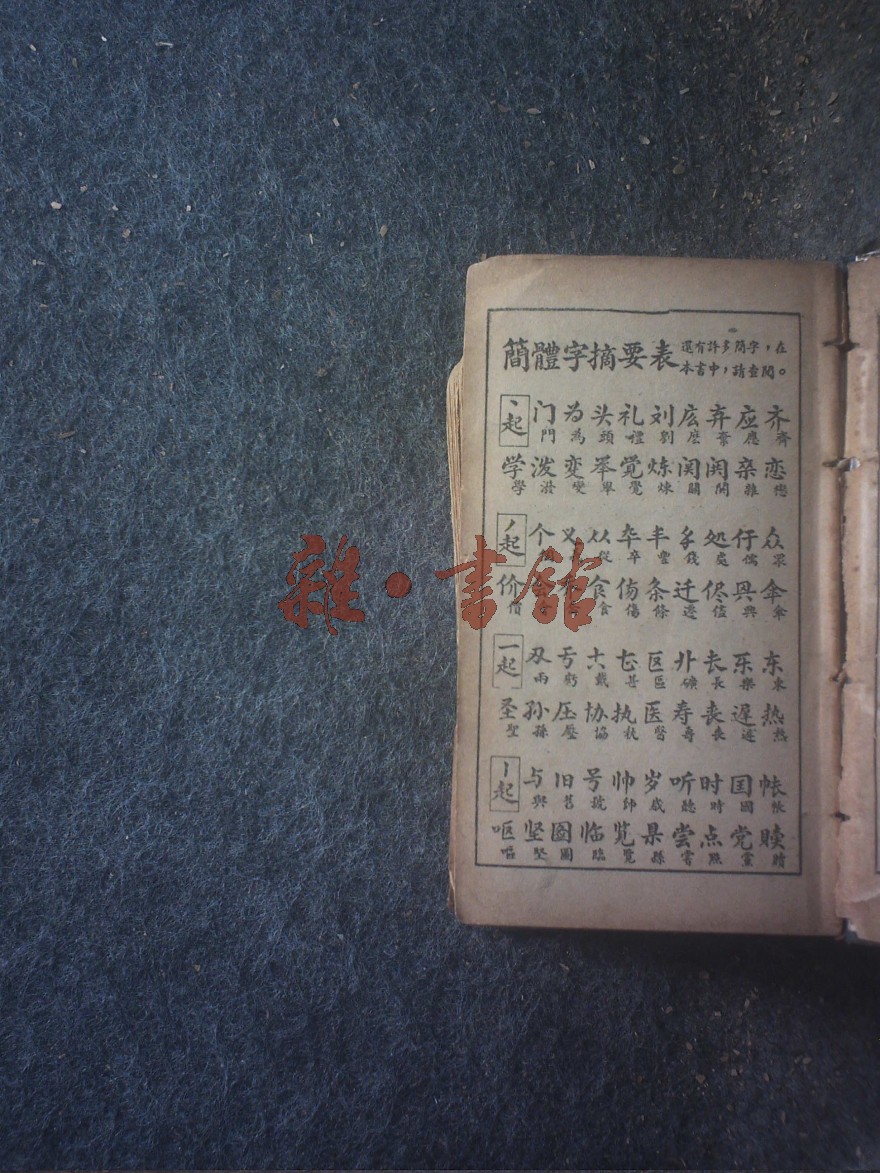 簡體字摘要表
還有許多簡字，在
本書中，請查閱。
丶起 门 为 头 礼 刘 庅 弃 应 齐
門 為 頭 禮 劉 麽 棄 應 齊
学 泼 变 举 觉 炼 関 亲 恋
學 潑 變 舉 覺 煉 關 開 雜 戀
丿起 个 义 从 卒 丰 処 仔 众
從 卒 豐 錢 處 儒 眾
价 食 伤 条 迁 侭 兴 伞
價 食 傷 條 遷 儘 興 傘
一起 亏 区 长 乐 东
兩 虧 戴 甚 區 礦 長 樂 東
圣 孙 压 协 执 医 寿 丧 迟 热
聖 孫 壓 協 執 醫 壽 喪 遲 熱
丨起 与 旧 号 帅 岁 听 时 国 帐
與 舊 號 帥 歲 聽 時 國 帳
呕 坚 图 临 览 尝 点 党 赎
嘔 堅 圖 臨 覽 縣 嘗 點 黨 贖
雜·書館